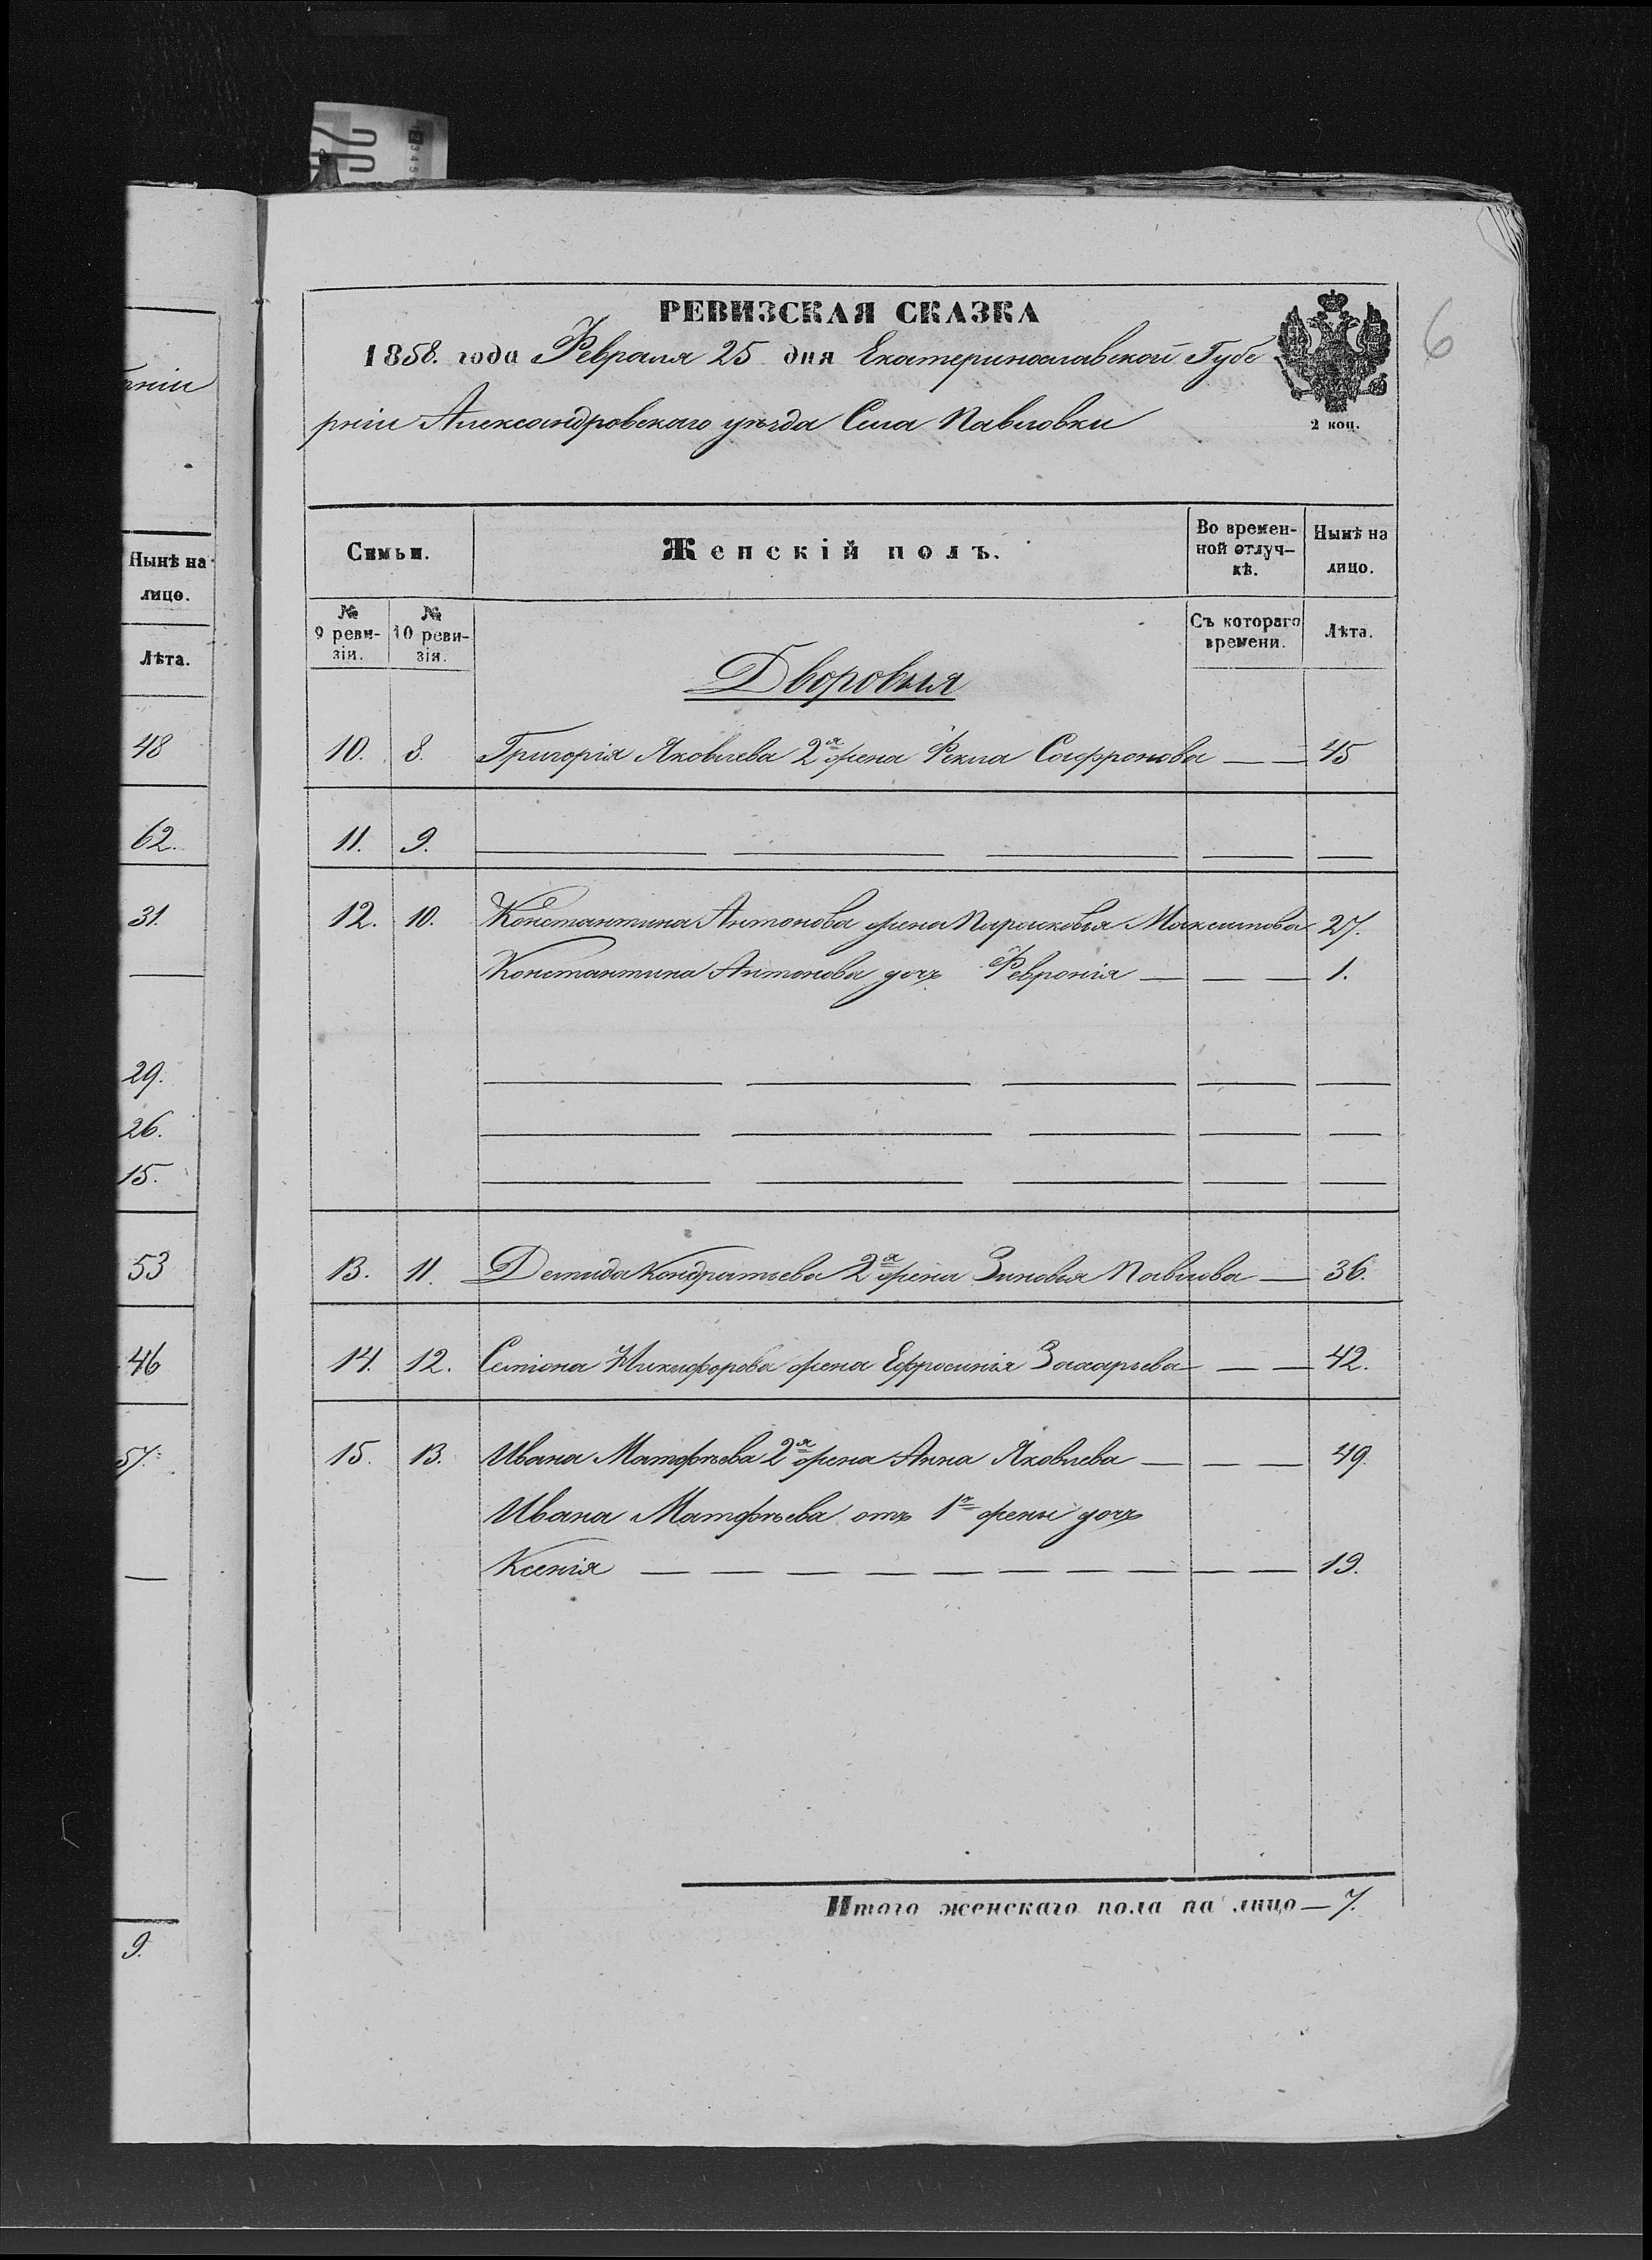 РЕВИЗСКАЯ СКАЗКА
1858. года Февраля 25 дня Екатеринославской Губе
рніи Александровскаго уѣзда Села Павловки
2 коп.
6
Симьи.
Женскій полъ.
Во времен-
ной отлуч-
кѣ.
Нынѣ на
лицо.
№
9 реви-
зіи.
№
10 реви-
зія.
Съ котораго
времени.
Лѣта.
Дворовыя
10. 8. Григорія Яковлева 2я жена Фекла Сафронова — — 45
11. 9. — — — — —
12. 10. Константина Антонова жена Парасковья Максимова 27.
Константина Антонова дочь Февронія — — — 1.
— — — — —
— — — — —
— — — — —
13. 11. Демида Кондратьева 2я жена Зиновья Павлова — 36.
14. 12. Семіона Никифорова жена Ефросинія Захарьева — — 42.
15. 13. Ивана Матфѣева 2я жена Анна Яковлева — — — 49.
Ивана Матфѣева отъ 1й жены дочь
Ксенія — — — — — — — — — — 19.
Итого женскаго пола на лицо — 7.
рніи
Нынѣ на
лицо.
Лѣта.
48
62.
31.
—
29.
26.
15.
53
46
57.
—
9.